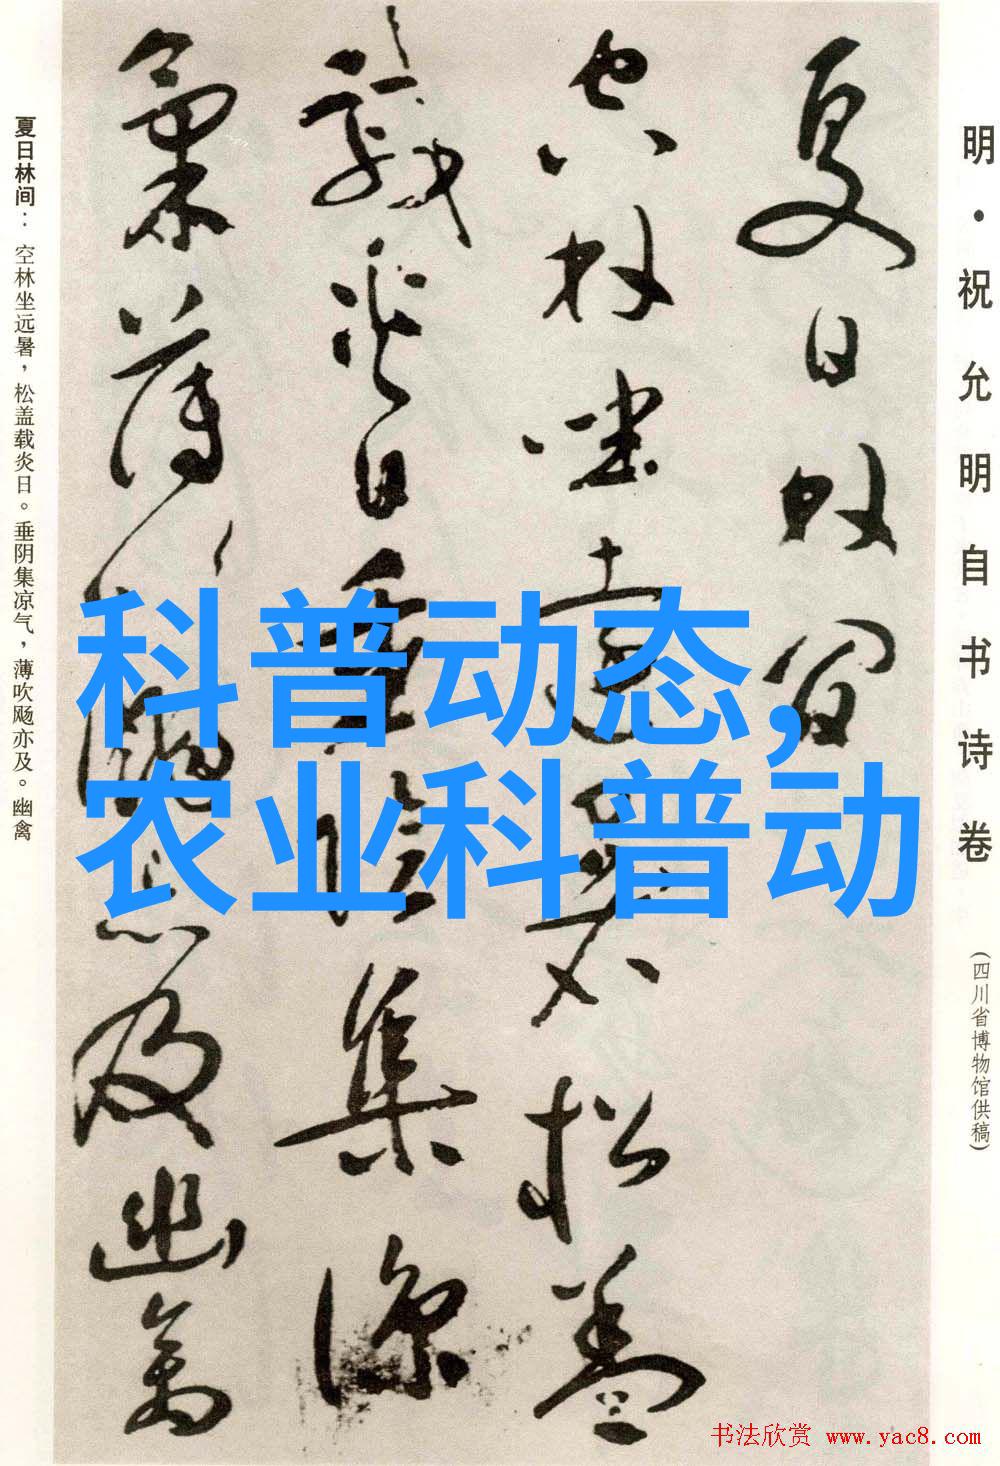 明·祝允明自书诗卷
(四川省博物馆供稿)
夏日林间
空林坐远暑松盖
载炎日垂阴集凉
气薄吹飏亦及幽禽
夏日林间：空林坐远暑，松盖载炎日。垂阴集凉气，薄吹飏亦及。幽禽
科普动态,
农业科普动
书法欣赏 www.yac8.com